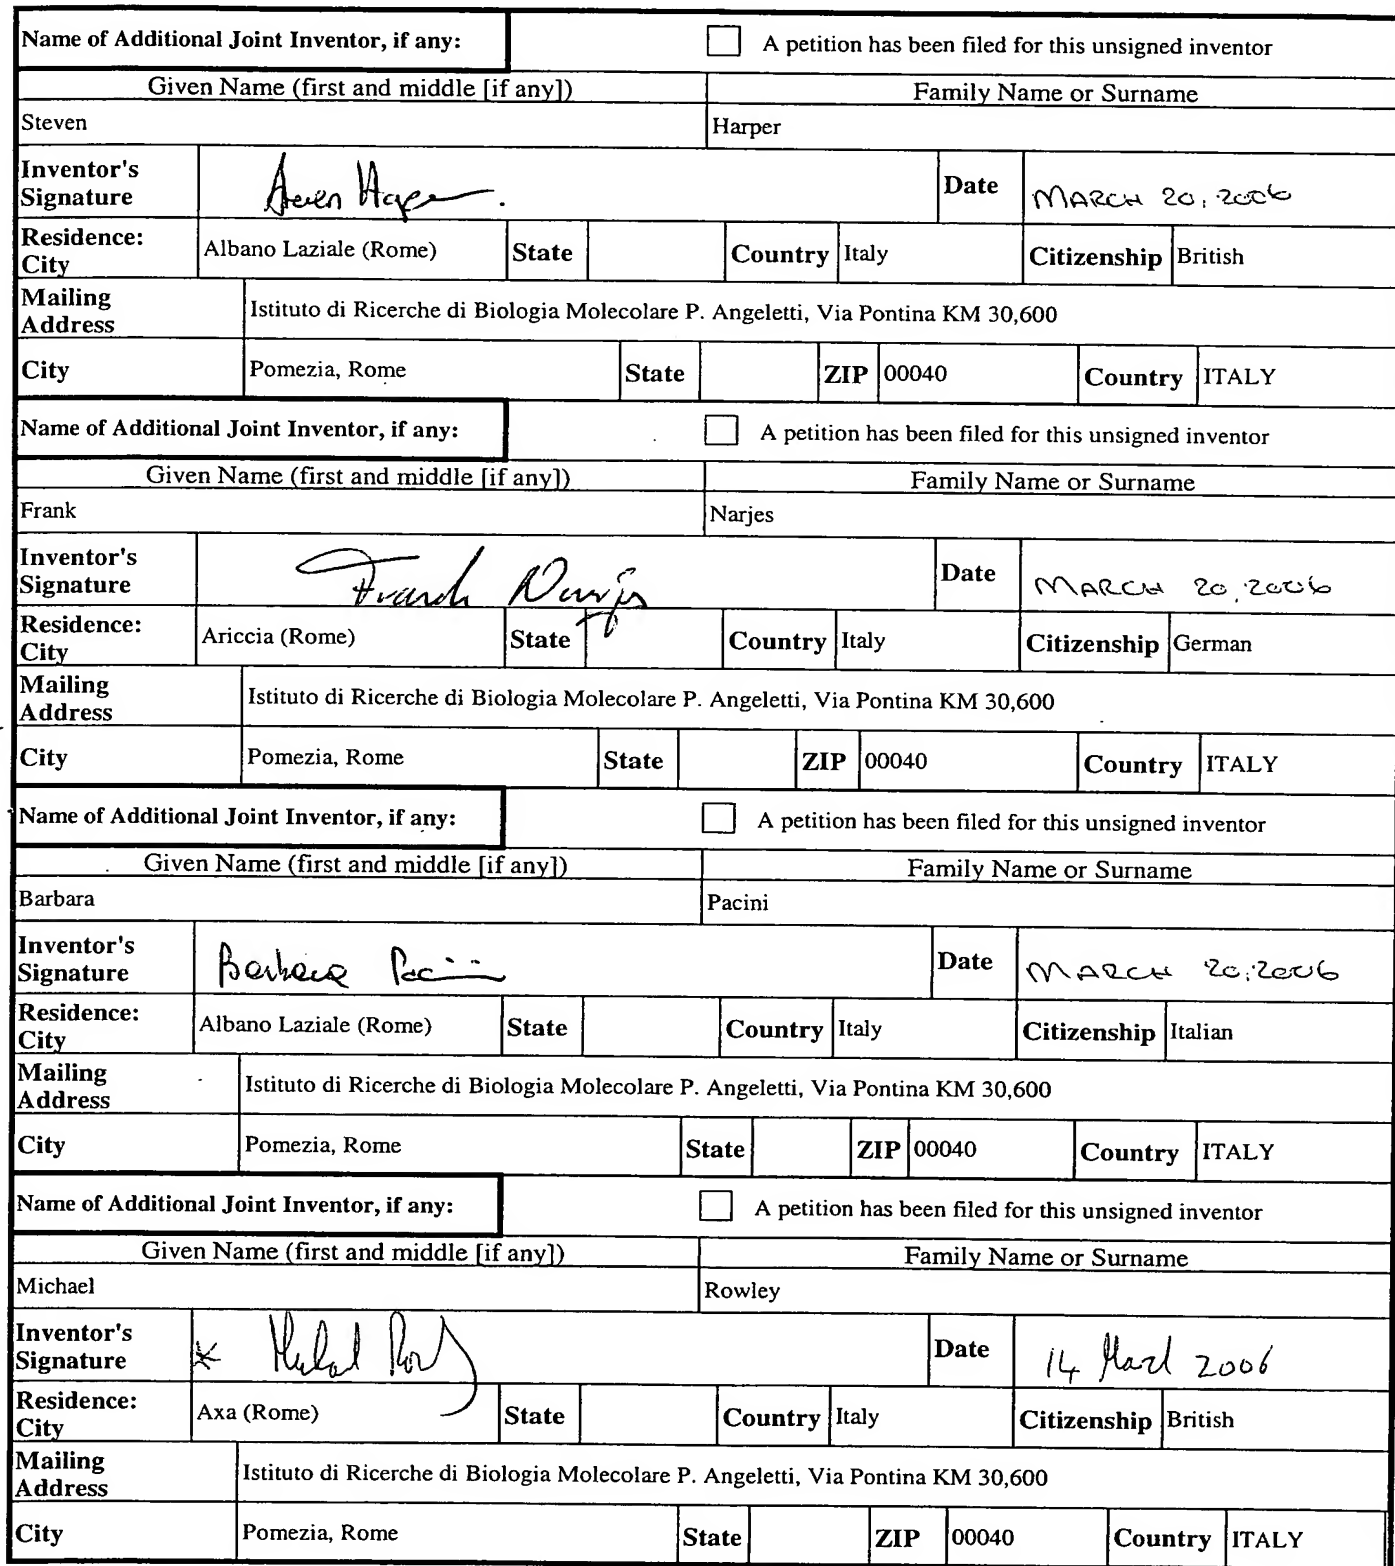 Name of Additional Joint Inventor, if any: A petition has been filed for this unsigned inventor
Given Name (first and middle [if any]) Family Name or Surname
Steven Harper
Inventor's Signature Steven Harper. Date MARCH 20, 2006
Residence: City Albano Laziale (Rome) State Country Italy Citizenship British
Mailing Address Istituto di Ricerche di Biologia Molecolare P. Angeletti, Via Pontina KM 30,600
City Pomezia, Rome State ZIP 00040 Country ITALY
Name of Additional Joint Inventor, if any: A petition has been filed for this unsigned inventor
Given Name (first and middle [if any]) Family Name or Surname
Frank Narjes
Inventor's Signature Frank Narjes Date MARCH 20, 2006
Residence: City Ariccia (Rome) State Country Italy Citizenship German
Mailing Address Istituto di Ricerche di Biologia Molecolare P. Angeletti, Via Pontina KM 30,600
City Pomezia, Rome State ZIP 00040 Country ITALY
Name of Additional Joint Inventor, if any: A petition has been filed for this unsigned inventor
Given Name (first and middle [if any]) Family Name or Surname
Barbara Pacini
Inventor's Signature Barbara Pacini Date MARCH 20, 2006
Residence: City Albano Laziale (Rome) State Country Italy Citizenship Italian
Mailing Address Istituto di Ricerche di Biologia Molecolare P. Angeletti, Via Pontina KM 30,600
City Pomezia, Rome State ZIP 00040 Country ITALY
Name of Additional Joint Inventor, if any: A petition has been filed for this unsigned inventor
Given Name (first and middle [if any]) Family Name or Surname
Michael Rowley
Inventor's Signature * Michael Rowley Date 14 March 2006
Residence: City Axa (Rome) State Country Italy Citizenship British
Mailing Address Istituto di Ricerche di Biologia Molecolare P. Angeletti, Via Pontina KM 30,600
City Pomezia, Rome State ZIP 00040 Country ITALY